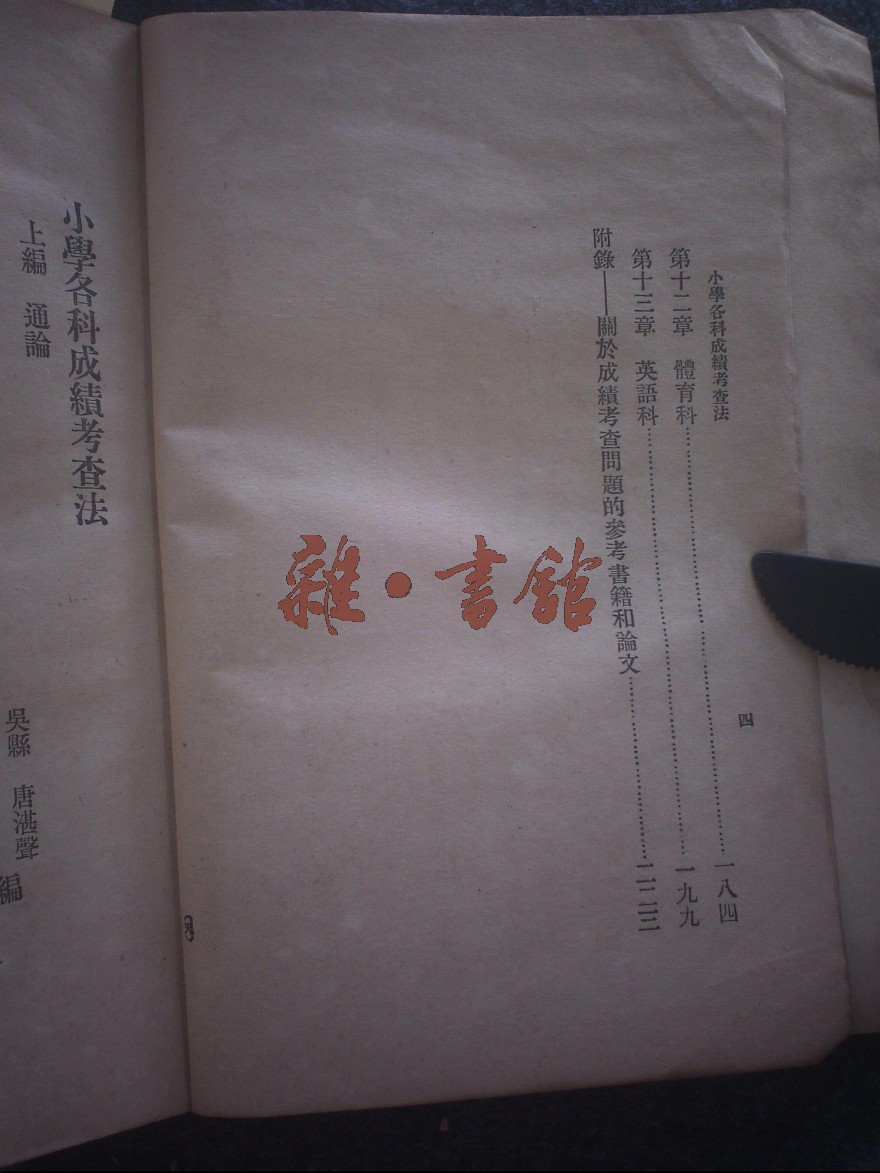 小學各科成績考查法
四
第十二章 體育科……一八四
第十三章 英語科……一九九
附錄——關於成績考查問題的參考書籍和論文……二二三
小學各科成績考查法
上編 通論
吳縣 唐湛聲 編
雜·書館